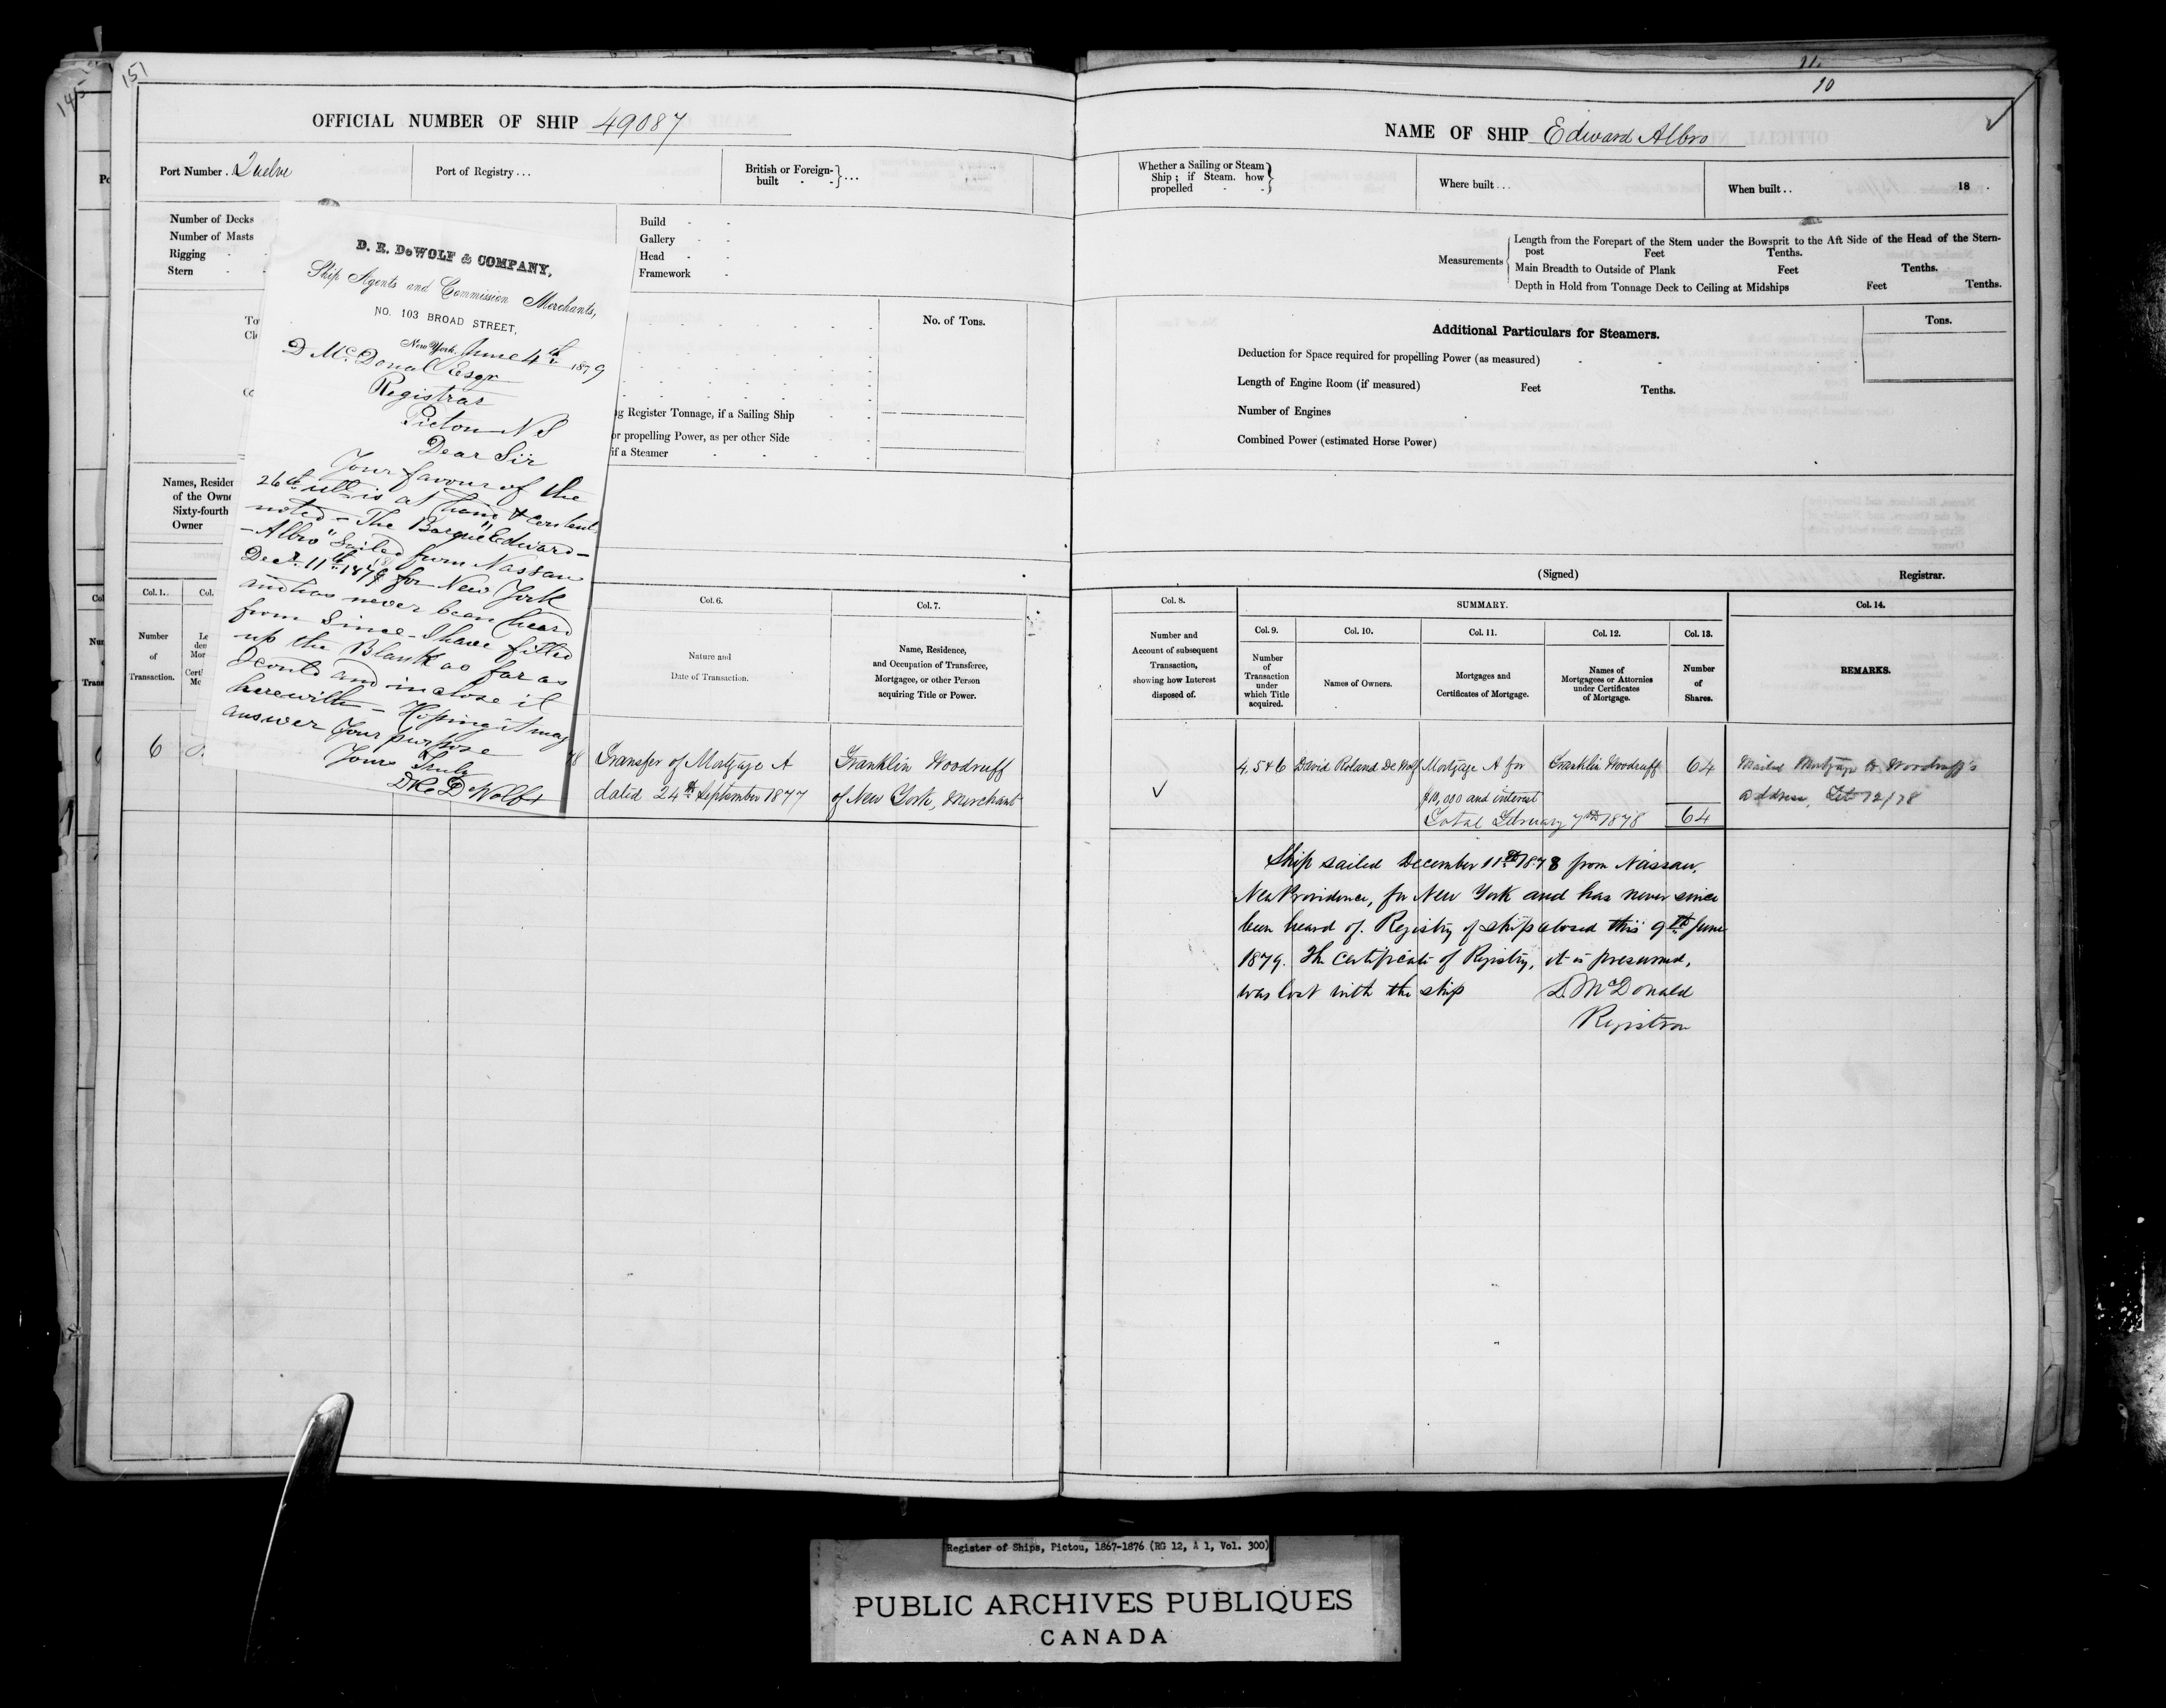 151
145
OFFICIAL NUMBER OF SHIP 49087
Port Number .. Twelve
Port of Registry ...
British or Foreign-built - - } ...
Number of Decks
Number of Masts
Rigging
Stern
Build
Gallery
Head
Framework
No. of Tons.
ng Register Tonnage, if a Sailing Ship
or propelling Power, as per other Side
if a Steamer
Names, Residen
of the Owne
Sixty-fourth
Owner
D. R. DeWOLF & COMPANY,
Ship Agents and Commission Merchants,
NO. 103 BROAD STREET,
New York, June 4th 1879
D McDonal Esqr
Registrar
Picton N S
Dear Sir
Your favour of the
26th ult is at hand & contents
noted - The Barque "Edward-
- Albro" Sailed from Nassau
Decr. 11th 1878 for New York
and has never been heard
from Since - I have filled
up the Blank as far as
I could and inclose it
herewith - Hoping it may
answer Your purpose
Yours Truly
Col. 1.
Number
of
Transaction.
Col. 6.
Nature and
Date of Transaction.
Col. 7.
Name, Residence,
and Occupation of Transferee,
Mortgagee, or other Person
acquiring Title or Power.
6
78
Transfer of Mortgage A
dated 24th September 1877
Franklin Woodruff
of New York, Merchant
11.
10
NAME OF SHIP Edward Albro
Whether a Sailing or Steam
Ship; if Steam. how
propelled
Where built ...
When built ..
18 .
Measurements
Length from the Forepart of the Stem under the Bowsprit to the Aft Side of the Head of the Stern-
post Feet Tenths.
Main Breadth to Outside of Plank Feet Tenths.
Depth in Hold from Tonnage Deck to Ceiling at Midships Feet Tenths.
Additional Particulars for Steamers.
Tons.
Deduction for Space required for propelling Power (as measured)
Length of Engine Room (if measured) Feet Tenths.
Number of Engines
Combined Power (estimated Horse Power)
(Signed) Registrar.
Col. 8.
Number and
Account of subsequent
Transaction,
showing how Interest
disposed of.
SUMMARY.
Col. 9.
Number
of
Transaction
under
which Title
acquired.
Col. 10.
Names of Owners.
Col. 11.
Mortgages and
Certificates of Mortgage.
Col. 12.
Names of
Mortgagees or Attornies
under Certificates
of Mortgage.
Col. 13.
Number
of
Shares.
Col. 14.
REMARKS.
4, 5 & 6
David Roland De Wolf
Mortgage A for
$10,000 and interest
Franklin Woodruff
64
Total February 7th 1878
64
Mailed Mortgage to Woodruff's
address, Feb 12/78
Ship sailed December 11th 1878 from Nassau,
New Providence, for New York and has never since
been heard of. Registry of ship closed this 9th June
1879. The Certificate of Registry, it is presumed,
was lost with the ship
D. McDonald
Registrar
Register of Ships, Pictou, 1867-1876 (RG 12, A 1, Vol. 300)
PUBLIC ARCHIVES PUBLIQUES
CANADA